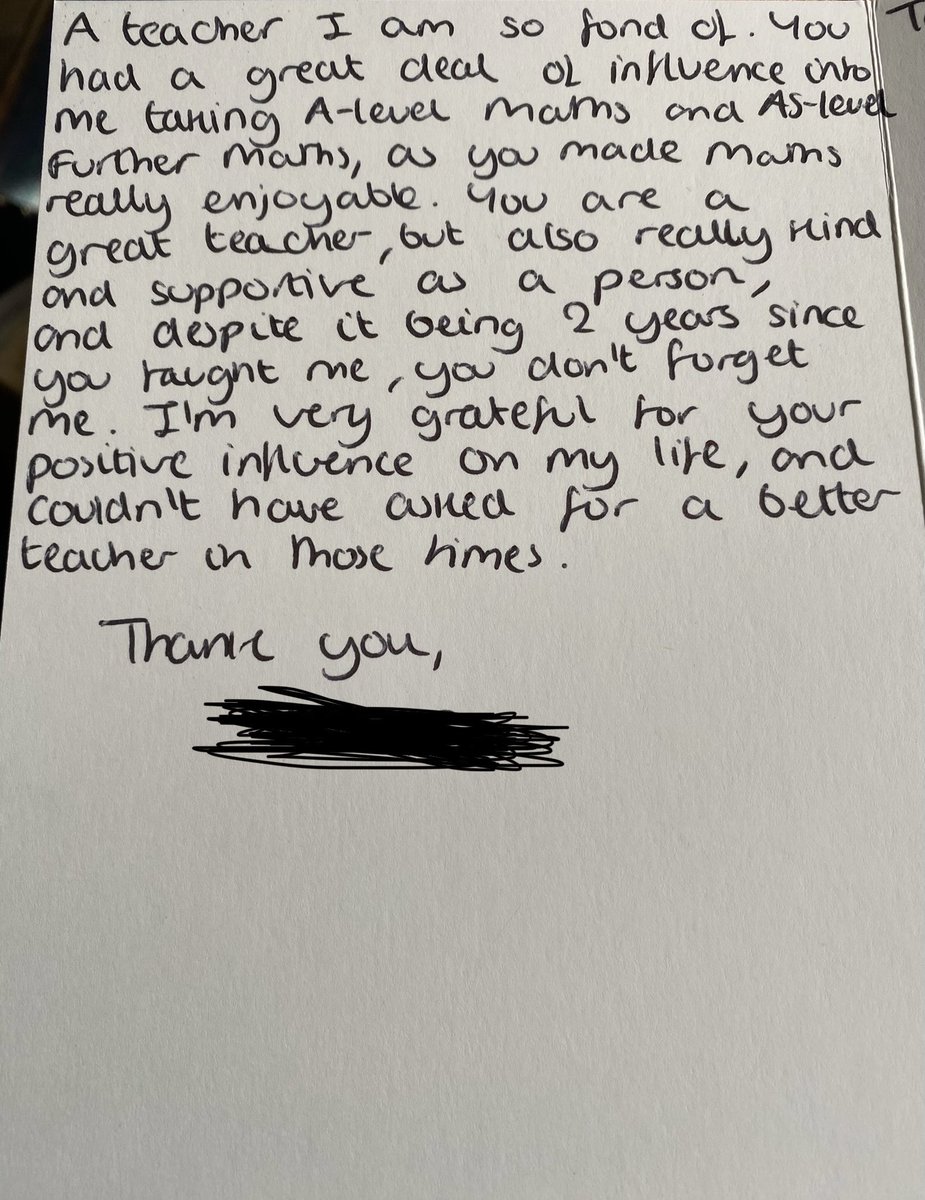 A teacher I am so fond of. You
had a great deal of influence into
me taking A-level maths and AS-level
Further Maths, as you made maths
really enjoyable. You are a
great teacher, but also really kind
and supportive as a person,
and despite it being 2 years since
you taught me, you don't forget
me. I'm very grateful for your
positive influence on my life, and
couldn't have asked for a better
teacher in those times.
Thank you,